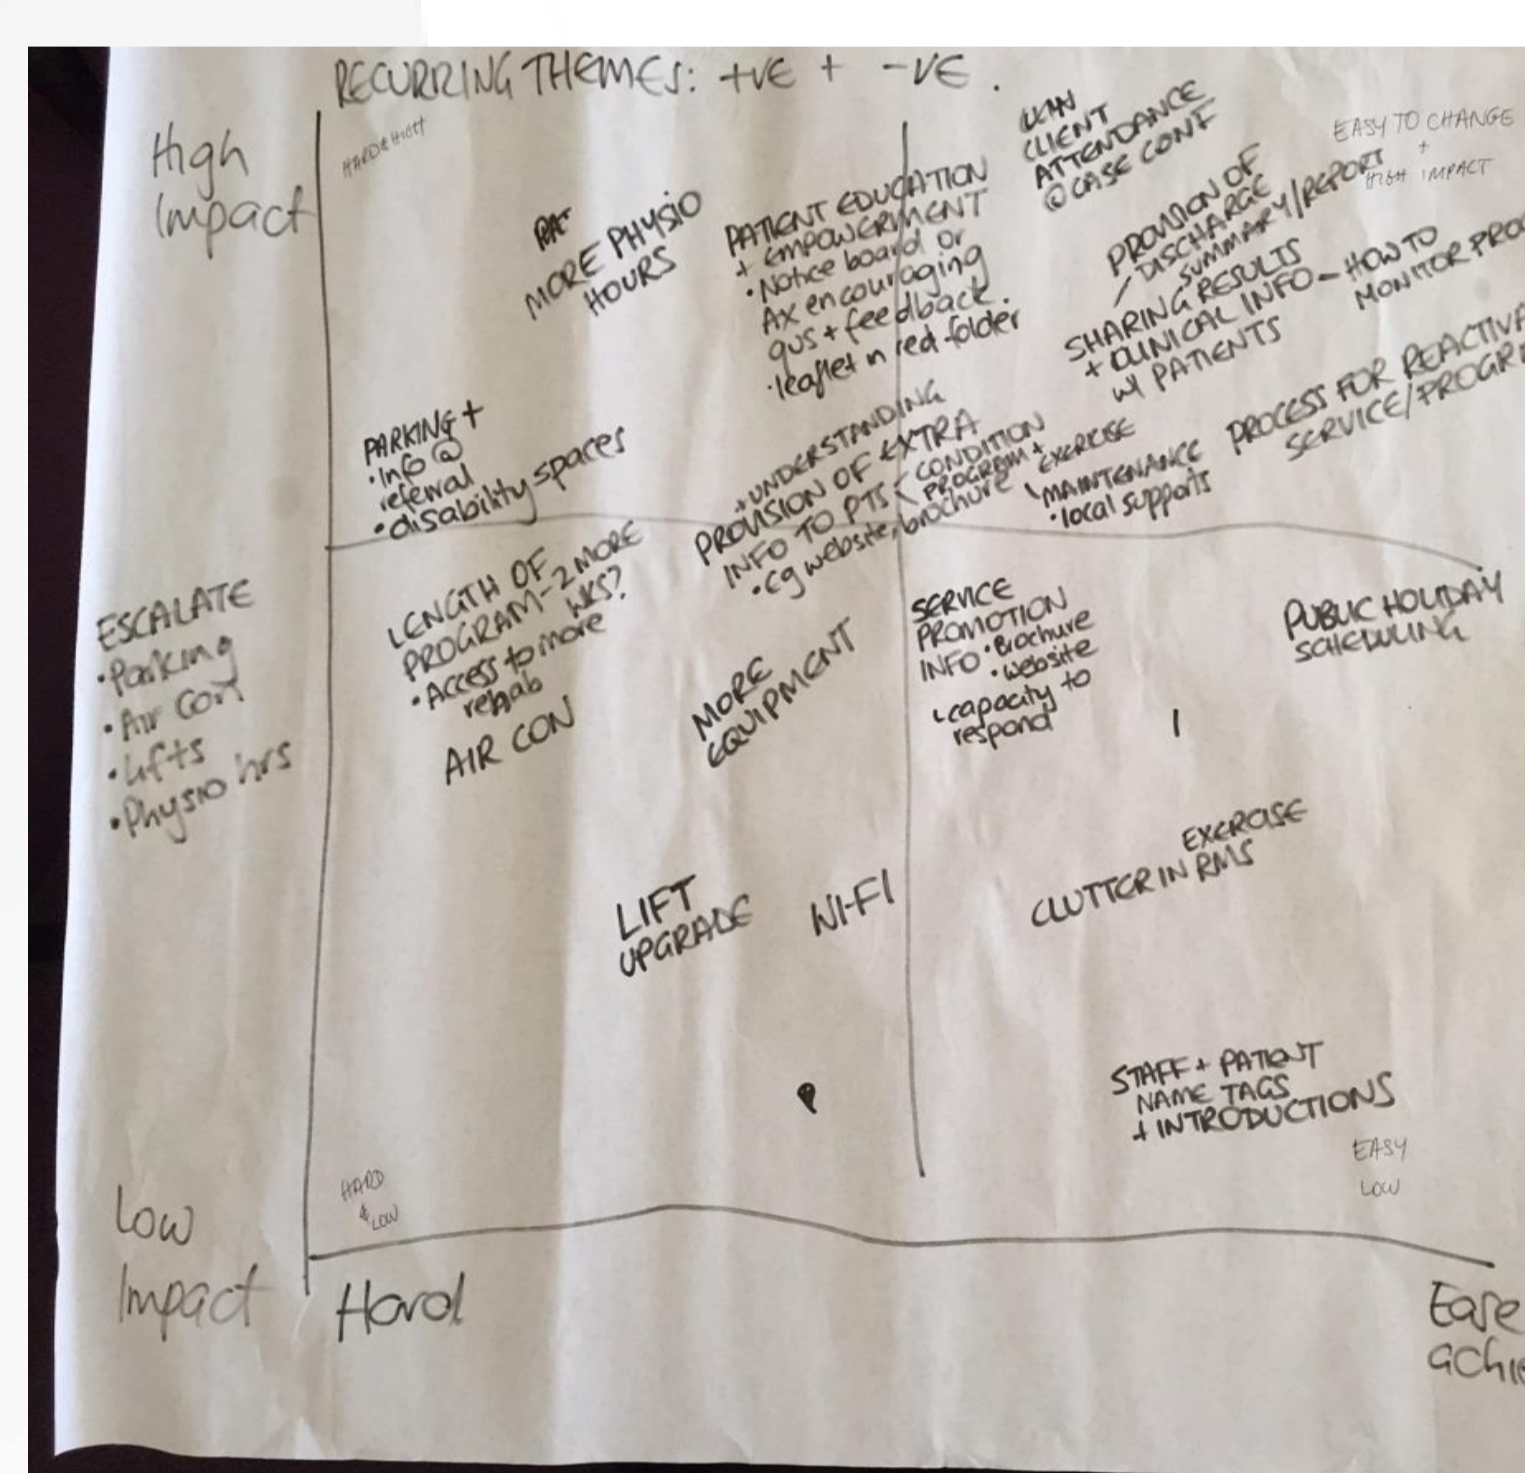 RECURRING THEMES: +VE + -VE.
High
Impact
HARD & HIGH
MORE PHYSIO
HOURS
PATIENT EDUCATION
+ EMPOWERMENT
• Notice board or
Ax encouraging
qus + feedback.
• leaflet in red folder
CLIENT
ATTENDANCE
@ CASE CONF
EASY TO CHANGE
+
HIGH IMPACT
PROVISION OF
DISCHARGE
SUMMARY/REPORT
SHARING RESULTS
+ CLINICAL INFO – HOW TO
MONITOR
W/ PATIENTS
PROCESS FOR
SERVICE/
PARKING +
• Info @
referral
• disability spaces
+ UNDERSTANDING
PROVISION OF EXTRA
INFO TO PTS < CONDITION
PROGRAM + EXERCISE
• eg website, brochure
MAINTENANCE
• local supports
ESCALATE
• Parking
• Air Con
• Lifts
• Physio hrs
LENGTH OF
PROGRAM – 2 MORE
WKS?
• Access to more
rehab
AIR CON
MORE
EQUIPMENT
SERVICE
PROMOTION
INFO • Brochure
• website
capacity to
respond
PUBLIC HOLIDAY
SCHEDULING
LIFT
UPGRADE
WI-FI
EXERCISE
CLUTTER IN RMS
STAFF + PATIENT
NAME TAGS
+ INTRODUCTIONS
EASY
LOW
HARD
& LOW
Low
Impact
Hard
Ease